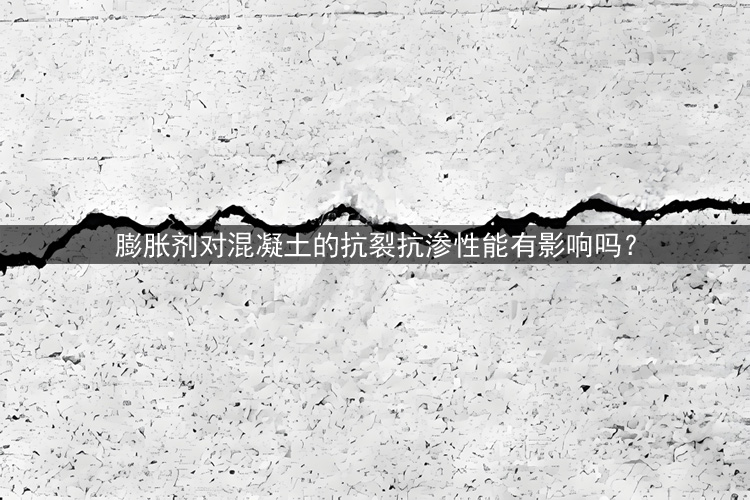 膨胀剂对混凝土的抗裂抗渗性能有影响吗？